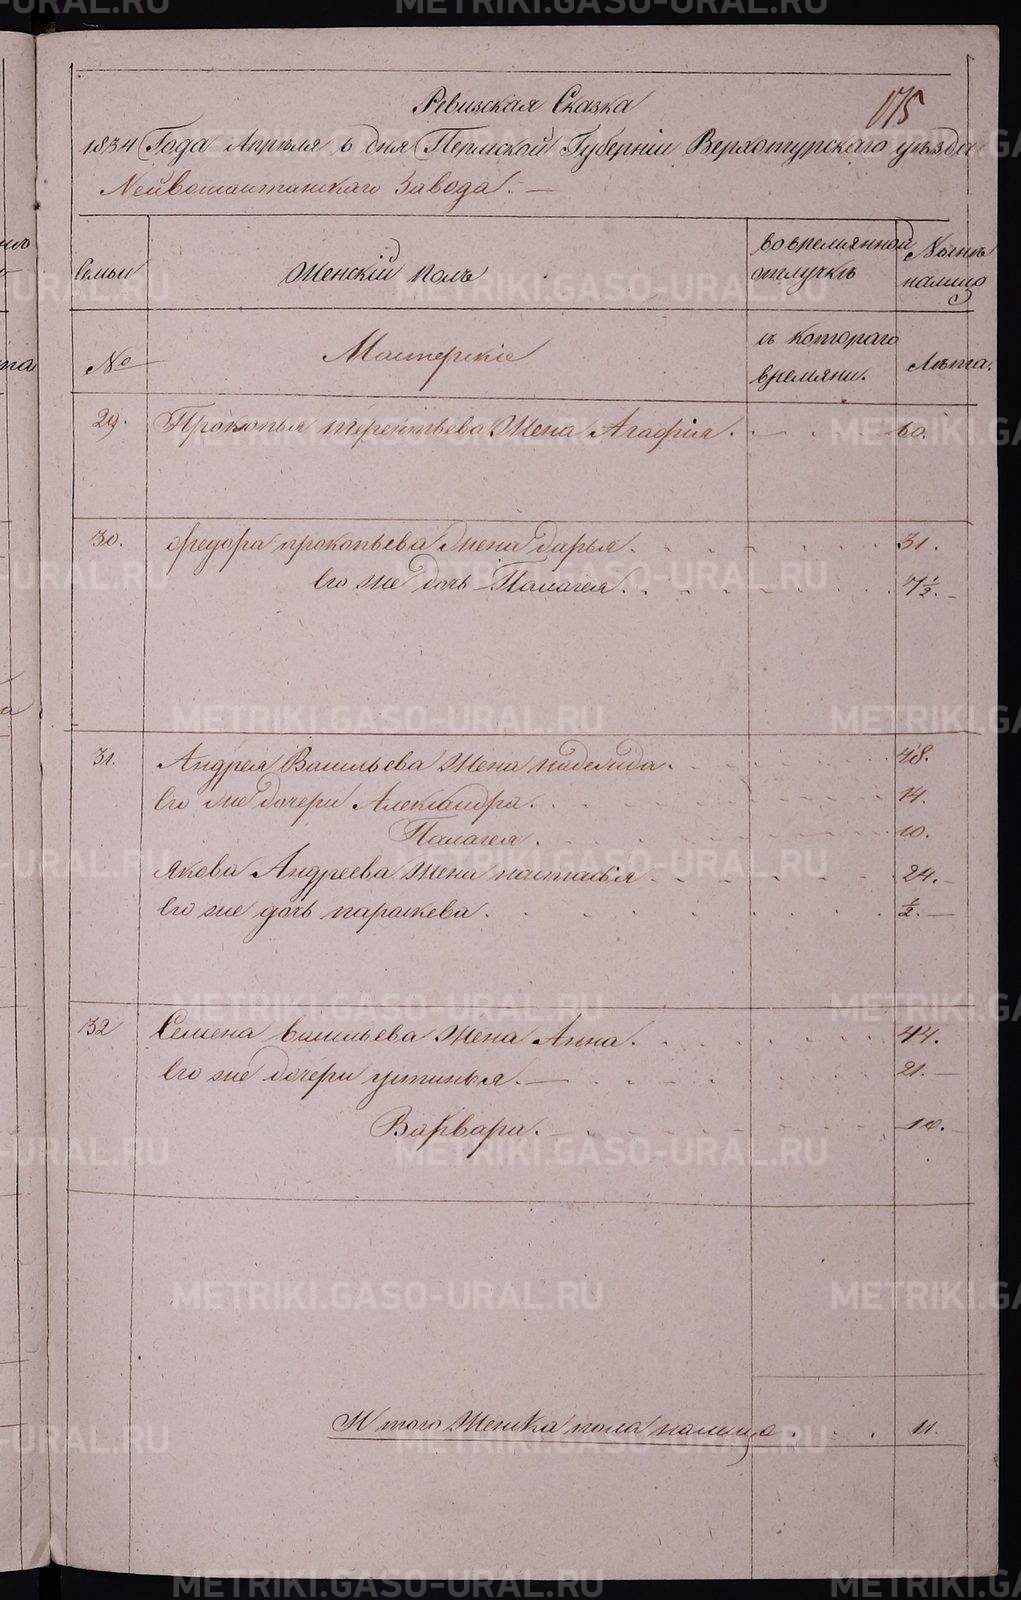 175
Ревизская Сказка
1834 Года Апреля 6 дня Пермской Губернiи Верхотурскаго уезда
Нейвошайтанскаго Завода. —
Семьи Женскiй полъ во времянной отлучкѣ Нынѣ налицо
№ Мастерскiе съ котораго времяни. Лѣта.
29. Прокопья терентьева Жена Агафiя. 60.
30. Федора прокопьева Жена дарья. 31.
Его же дочь Палагея. 7 1/2. —
31. Андрея Васильева Жена надежда. 48.
Его же дочери Александра. 14.
Палагея. 10.
Якова Андреева Жена настасья 24. —
Его же дочь параскева. 1/2. —
32 Семена васильева Жена Анна. 44.
Его же дочери устинья. — 21. —
Варвара. 10.
И того Женска пола налицо 11.
METRIKI.GASO-URAL.RU